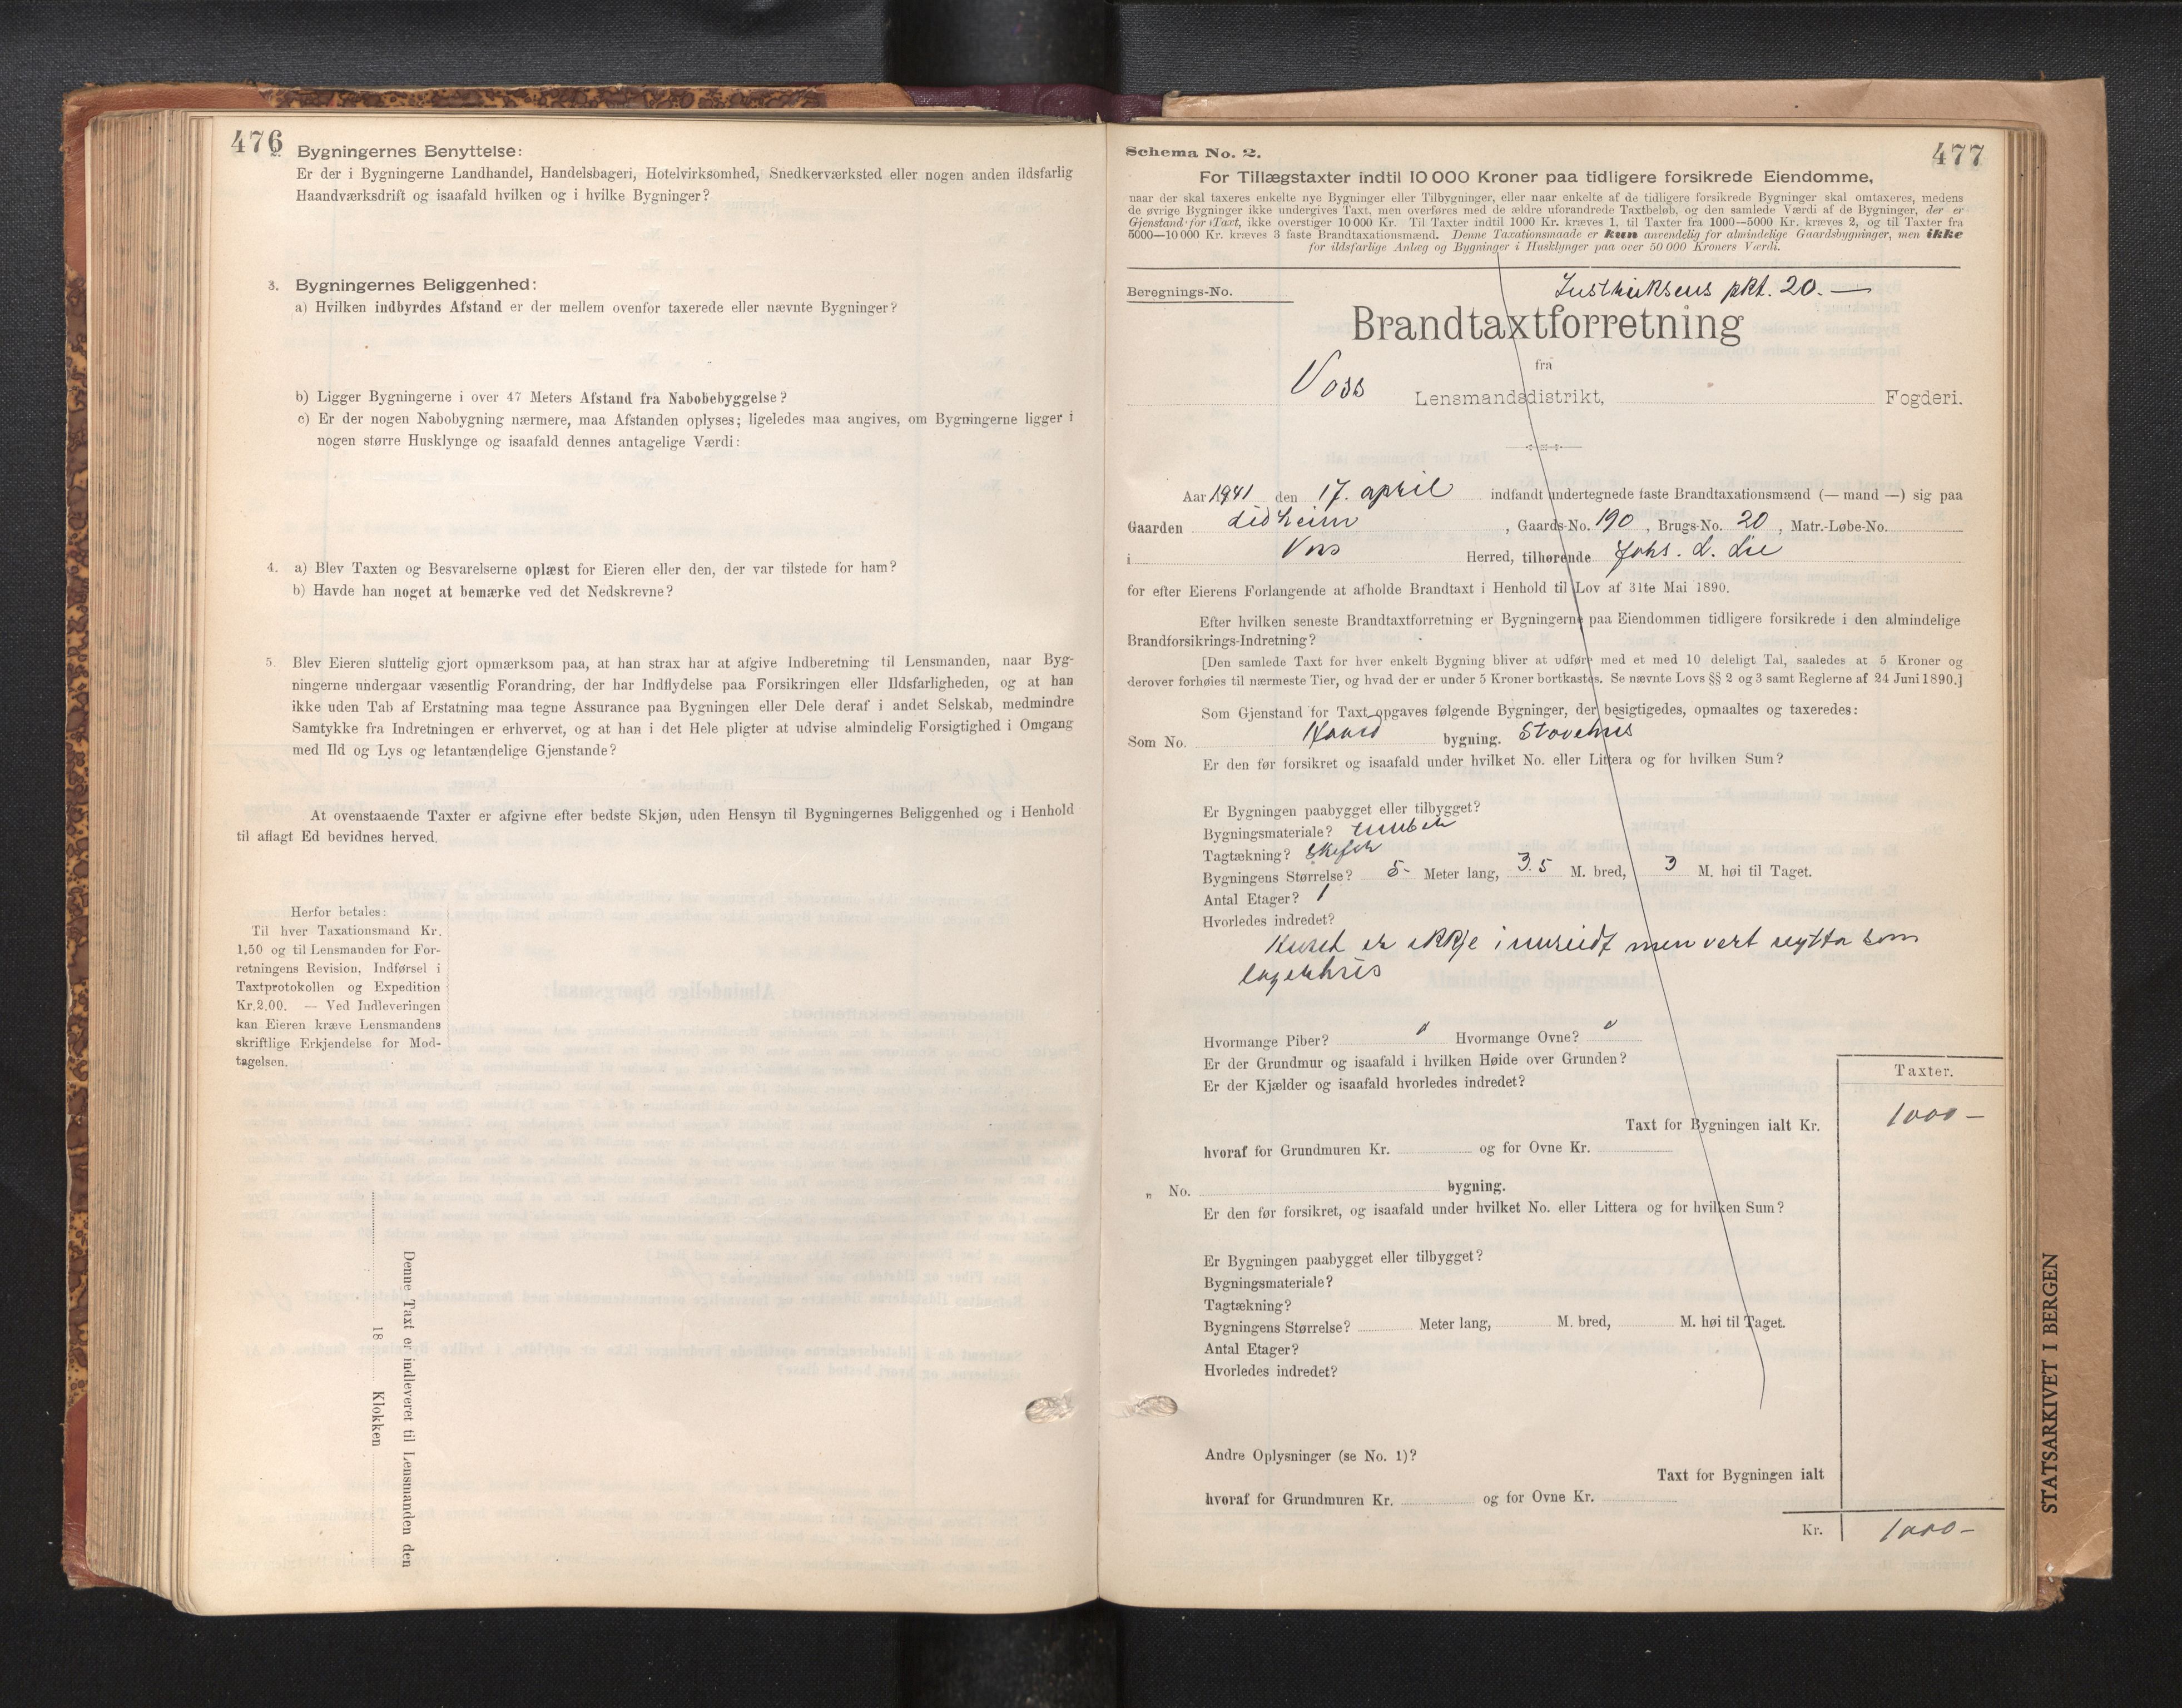 476
2. Bygningernes Benyttelse:
Er der i Bygningerne Landhandel, Handelsbageri, Hotelvirksomhed, Snedkerværksted eller nogen anden ildsfarlig
Haandværksdrift og isaafald hvilken og i hvilke Bygninger?
3. Bygningernes Beliggenhed:
a) Hvilken indbyrdes Afstand er der mellem ovenfor taxerede eller nævnte Bygninger?
b) Ligger Bygningerne i over 47 Meters Afstand fra Nabobebyggelse?
c) Er der nogen Nabobygning nærmere, maa Afstanden oplyses; ligeledes maa angives, om Bygningerne ligger i
nogen større Husklynge og isaafald dennes antagelige Værdi:
4. a) Blev Taxten og Besvarelserne oplæst for Eieren eller den, der var tilstede for ham?
b) Havde han noget at bemærke ved det Nedskrevne?
5. Blev Eieren sluttelig gjort opmærksom paa, at han strax har at afgive Indberetning til Lensmanden, naar Byg-
ningerne undergaar væsentlig Forandring, der har Indflydelse paa Forsikringen eller Ildsfarligheden, og at han
ikke uden Tab af Erstatning maa tegne Assurance paa Bygningen eller Dele deraf i andet Selskab, medmindre
Samtykke fra Indretningen er erhvervet, og at han i det Hele pligter at udvise almindelig Forsigtighed i Omgang
med Ild og Lys og letantændelige Gjenstande?
At ovenstaaende Taxter er afgivne efter bedste Skjøn, uden Hensyn til Bygningernes Beliggenhed og i Henhold
til aflagt Ed bevidnes herved.
Herfor betales:
Til hver Taxationsmand Kr.
1.50 og til Lensmanden for For-
retningens Revision, Indførsel i
Taxtprotokollen og Expedition
Kr. 2.00. — Ved Indleveringen
kan Eieren kræve Lensmandens
skriftlige Erkjendelse for Mod-
tagelsen.
Denne Taxt er indleveret til Lensmanden den
18 Klokken
477
Schema No. 2.
For Tillægstaxter indtil 10 000 Kroner paa tidligere forsikrede Eiendomme,
naar der skal taxeres enkelte nye Bygninger eller Tilbygninger, eller naar enkelte af de tidligere forsikrede Bygninger skal omtaxeres, medens
de øvrige Bygninger ikke undergives Taxt, men overføres med de ældre uforandrede Taxtbeløb, og den samlede Værdi af de Bygninger, der er
Gjenstand for Taxt, ikke overstiger 10 000 Kr. Til Taxter indtil 1000 Kr. kræves 1, til Taxter fra 1000—5000 Kr. kræves 2, og til Taxter fra
5000—10 000 Kr. kræves 3 faste Brandtaxationsmænd. Denne Taxationsmaade er kun anvendelig for almindelige Gaardsbygninger, men ikke
for ildsfarlige Anlæg og Bygninger i Husklynger paa over 50 000 Kroners Værdi.
Beregnings-No.
pkt. 20. —
Brandtaxtforretning
fra
Voss Lensmandsdistrikt, Fogderi.
Aar 1941 den 17. april indfandt undertegnede faste Brandtaxationsmænd (— mand —) sig paa
Gaarden Lidheim, Gaards-No. 190, Brugs-No. 20, Matr.-Løbe-No.
i Voss Herred, tilhørende Johs. L. Lie
for efter Eierens Forlangende at afholde Brandtaxt i Henhold til Lov af 31te Mai 1890.
Efter hvilken seneste Brandtaxtforretning er Bygningerne paa Eiendommen tidligere forsikrede i den almindelige
Brandforsikrings-Indretning?
[Den samlede Taxt for hver enkelt Bygning bliver at udføre med et med 10 deleligt Tal, saaledes at 5 Kroner og
derover forhøies til nærmeste Tier, og hvad der er under 5 Kroner bortkastes. Se nævnte Lovs §§ 2 og 3 samt Reglerne af 24 Juni 1890.]
Som Gjenstand for Taxt opgaves følgende Bygninger, der besigtigedes, opmaaltes og taxeredes:
Som No. bygning. Stovehus
Er den før forsikret og isaafald under hvilket No. eller Littera og for hvilken Sum?
Er Bygningen paabygget eller tilbygget?
Bygningsmateriale? tømber
Tagtækning? Skifer
Bygningens Størrelse? 5- Meter lang, 3.5 M. bred, 3 M. høi til Taget.
Antal Etager? 1
Hvorledes indreedet?
Huset er ikkje innreidt men vert nytta som
lagerhus
Hvormange Piber? Hvormange Ovne?
Er der Grundmur og isaafald i hvilken Høide over Grunden?
Er der Kjælder og isaafald hvorledes indredet?
Taxter.
Taxt for Bygningen ialt Kr. 1000 —
hvoraf for Grundmuren Kr. og for Ovne Kr.
„ No. bygning.
Er den før forsikret, og isaafald under hvilket No. eller Littera og for hvilken Sum?
Er Bygningen paabygget eller tilbygget?
Bygningsmateriale?
Tagtækning?
Bygningens Størrelse? Meter lang, M. bred, M. høi til Taget.
Antal Etager?
Hvorledes indredet?
Andre Oplysninger (se No. 1)?
Taxt for Bygningen ialt
hvoraf for Grundmuren Kr. og for Ovne Kr.
Kr. 1000 —
STATSARKIVET I BERGEN